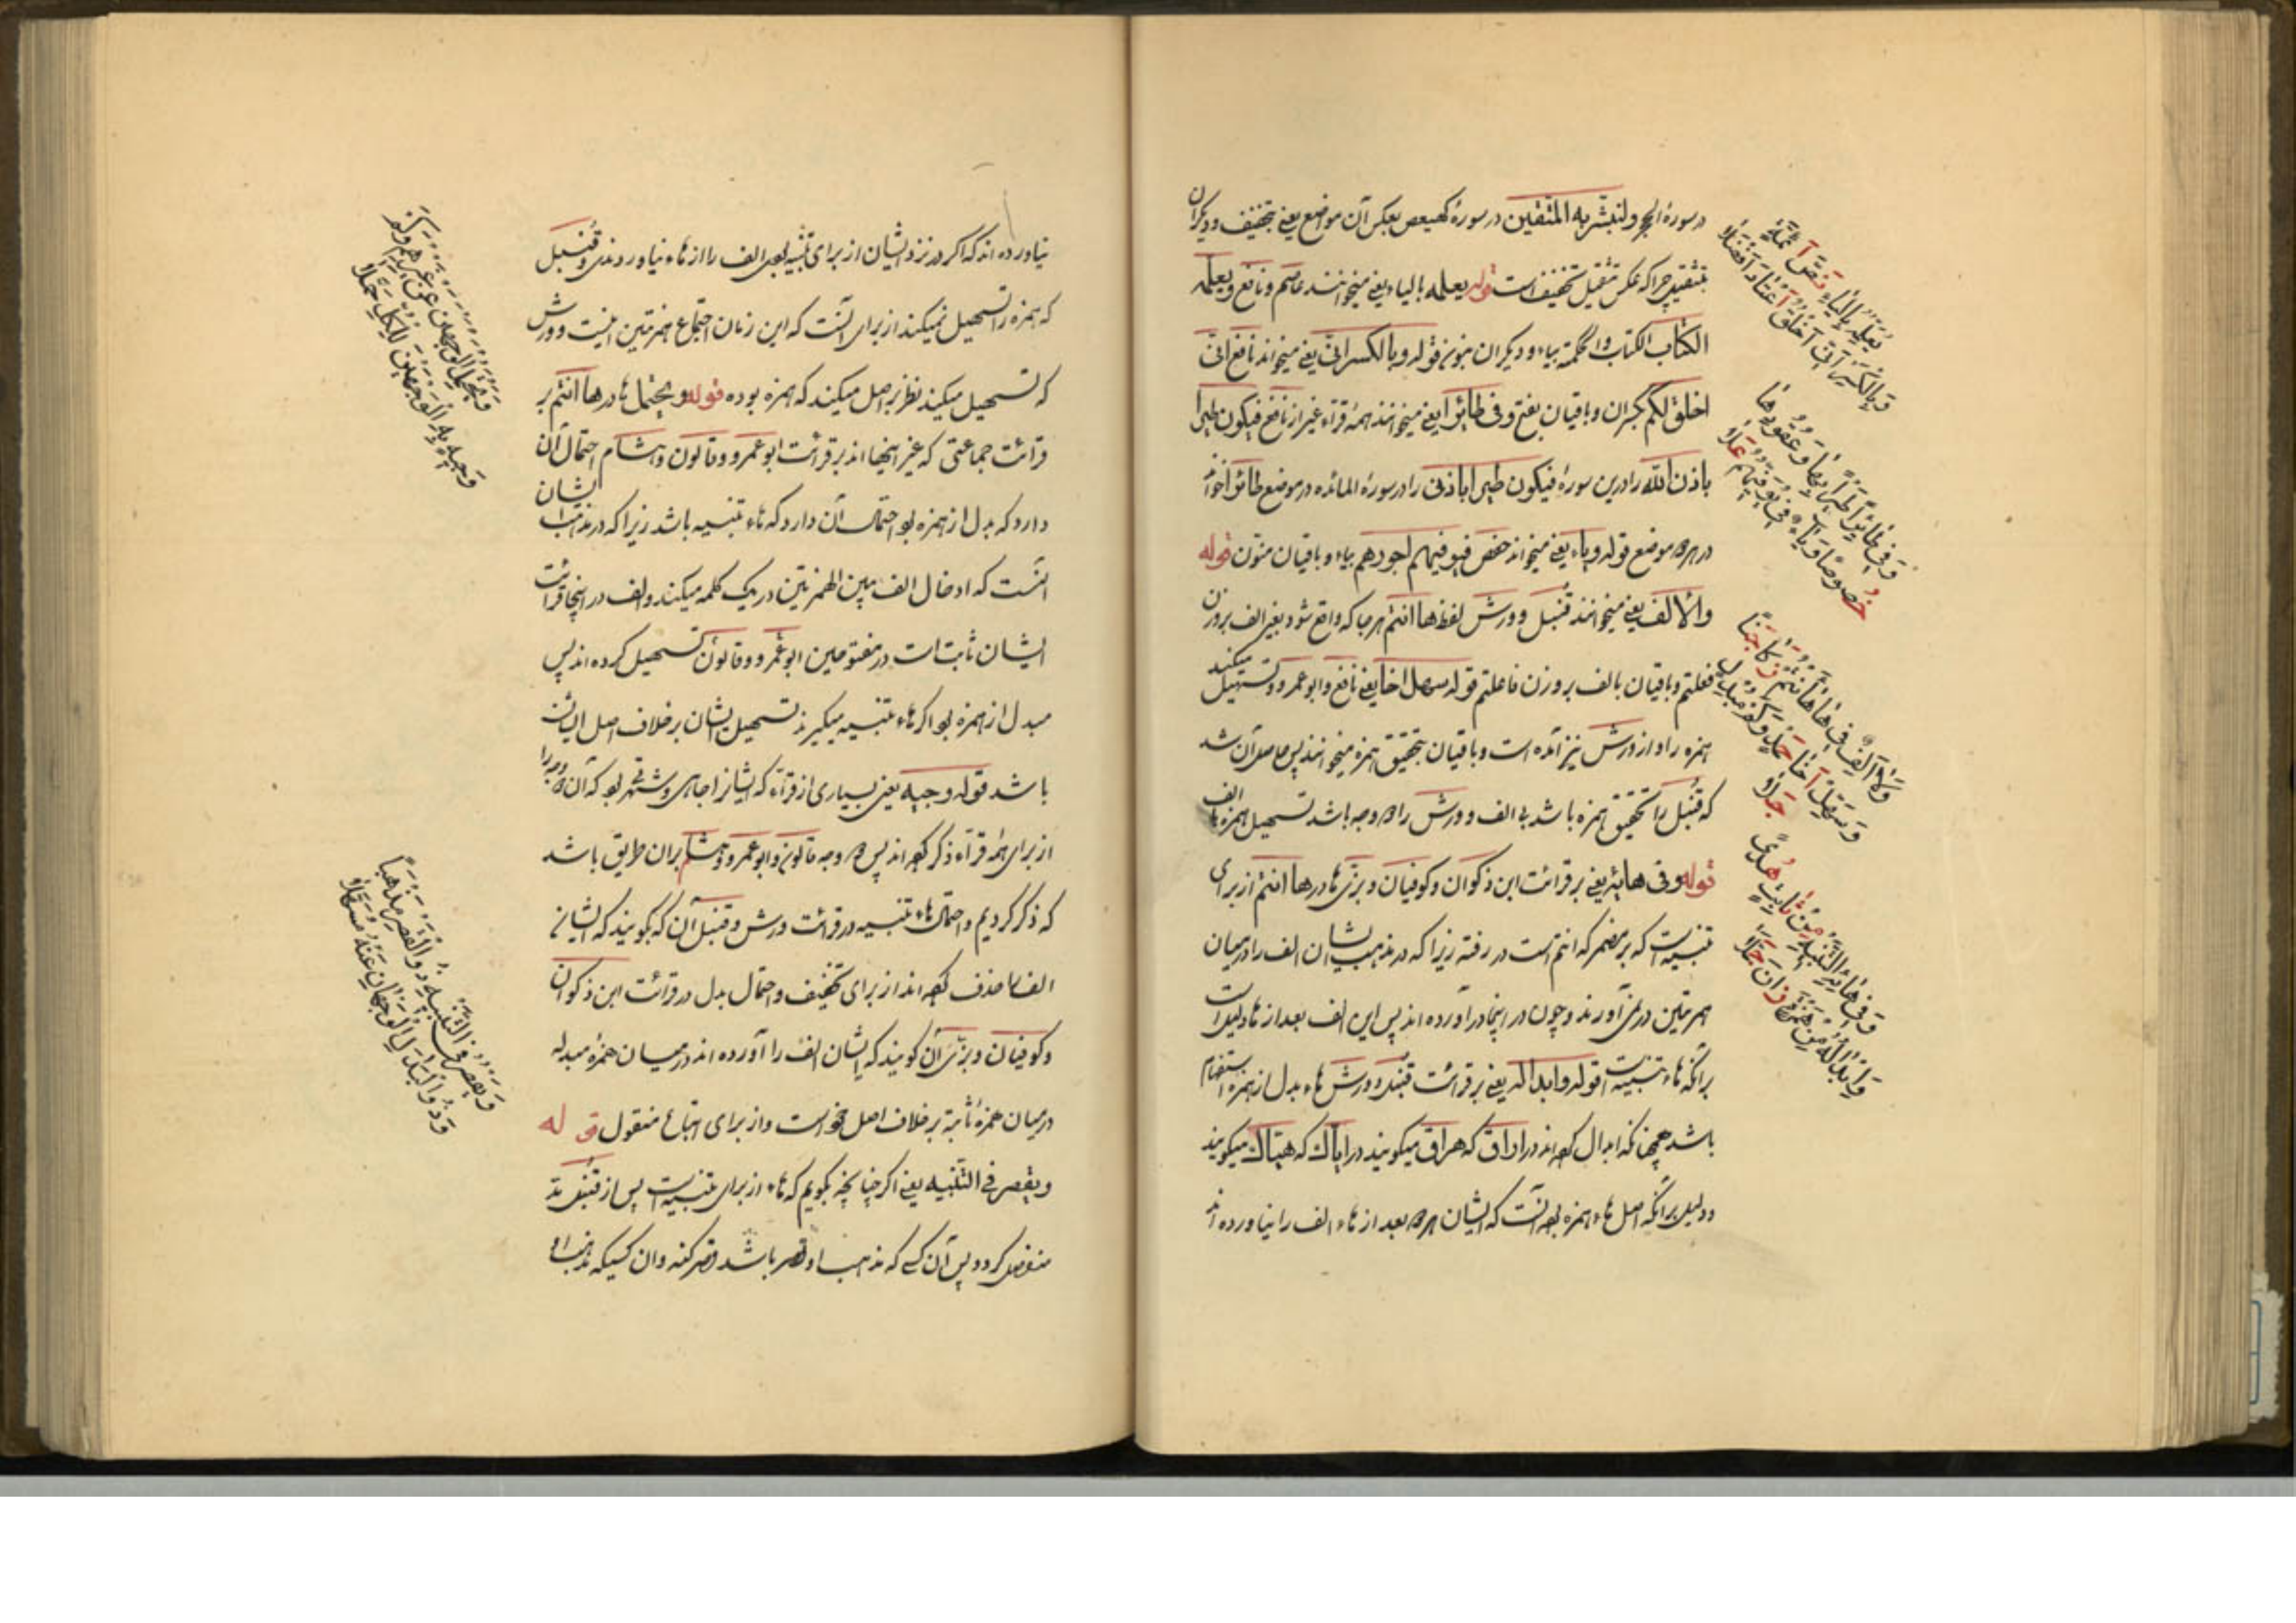 در سورة الحجر ولنبشر به المتقین در سورهٔ کهیعص بعکس آن مواضع یعنی بتخفیف و دیکران
بتثقیل چرا که عکس تثقیل تخفیف است قوله یعلمه بالیاء یعنی میخوانند عاصم و نافع ویعلمه
الکتاب الکتاب والحکمة بیاء و دیکران بنون قوله وبالکسر انی یعنی میخواند نافع انی
اخلق لکم بکسران و باقیان بفتح وفی طائرا یعنی میخوانند همهٔ قرآء غیر از نافع فیکون طیرا
باذن الله را درین سورهٔ فیکون طیرا باذنی را در سورهٔ المائده در موضع طائرا خواند
در هر دو موضع قوله ویاء یعنی میخواند حفص فیوفیهم اجورهم بیاء و باقیان بنون قوله
والا الف یعنی میخوانند قنبل و ورش لفظ ها انتم هرجا که واقع شود بغیر الف بر وزن
فعلتم و باقیان بالف بر وزن فاعلتم قوله سهل اخا یعنی نافع و ابوعمرو تسهیل میکنند
همزه را و از ورش نیز آمده است و باقیان بتحقیق همزه میخوانند پس حاصل آن شد
که قنبل را تحقیق همزه باشد بی الف و ورش را دو وجه باشد تسهیل همزه با الف
قوله وفی هائه یعنی بر قرائت ابن ذکوان و کوفیان و بزی ها در ها انتم از برای
تنبیه است که بر مضمر که انتم است در رفته زیرا که در مذهب ایشان الف را در میان
همزتین در نمی آورند و چون در اینجا در آورده اند پس این الف بعد از ها دلیل است
بر آنکه هاء تنبیه است قوله وابداله یعنی بر قرائت قنبل و ورش هاء بدل از همزه استفهام
باشد همچنانکه ابدال کرده اند در اراق که هراق میکویند در ایاک که هیاک میکویند
و دلیل بر آنکه اصل هاء همزه بوده آنست که ایشان هر دو بعد از هاء الف را نیاورده اند
یعلمه بالیاء نص آئمة
وبالکسر انی اخلق اعتاد افصلا
وفی طائرا طیرا بها وعقودها
خصوصا ویاء فی نوفیهم علا
ولا الف فی ها هانتم زکا جنا
وسهل اخا حمد وکم مبدل جلا
وفی هائه التنبیه من ثابت هدی
وابداله من همزة زان جملا
نیاورده اند که اکر در نزد ایشان از برای تنبیه بودی الف را از هاء نیاوردندی و قنبل
که همزه را تسهیل نمیکند از برای آنست که این زمان اجتماع همزتین نیست و ورش
که تسهیل میکند نظر بر اصل میکند که همزه بوده قوله ویحتمل ها در ها انتم بر
قرائت جماعتی که غیر اینها اند بر قرائت ابوعمرو و قالون و هشام احتمال آن
دارد که بدل از همزه بود احتمال آن دارد که هاء تنبیه باشد زیرا که در مذهب ایشان
آنست که ادخال الف بین الهمزتین در یک کلمه میکنند و الف در اینجا قرائت
ایشان ثابت است در مفتوحین ابوعمرو و قالون تسهیل کرده اند پس
مبدل از همزه بود اکر هاء تنبیه میکیرند تسهیل ایشان بر خلاف اصل ایشان
باشد قوله وجیه یعنی بسیاری از قرآء که ایشانرا جاهی و شهرتی بود که آن دو وجه را
از برای همهٔ قرآء ذکر کرده اند پس دو وجه قالون و ابوعمرو و هشام بران طریق باشد
که ذکر کردیم و احتمال هاء تنبیه در قرائت ورش و قنبل آن که بکویند که ایشان
الف را حذف کرده اند از برای تخفیف و احتمال بدل در قرائت ابن ذکوان
و کوفیان و بزی آن کویند که ایشان الف را آورده اند در میان همزهٔ مبدله
در میان همزهٔ ثابته بر خلاف اصل خود است و از برای اتباع منقول قوله
ویقصر فی التنبیه یعنی اکر چنانچه بکویم که هاء از برای تنبیه است پس از قبیل مد
منفصل کردد پس آن کس که مذهب او قصر باشد قصر کند وان کسیکه مذهب او
ویحتمل الوجهین عن غیرهم وکم
وجیه به الوجهین للکل حملا
ویقصر فی التنبیه ذو القصر مذهبا
وذو البدل الوجهان عنه مسهلا